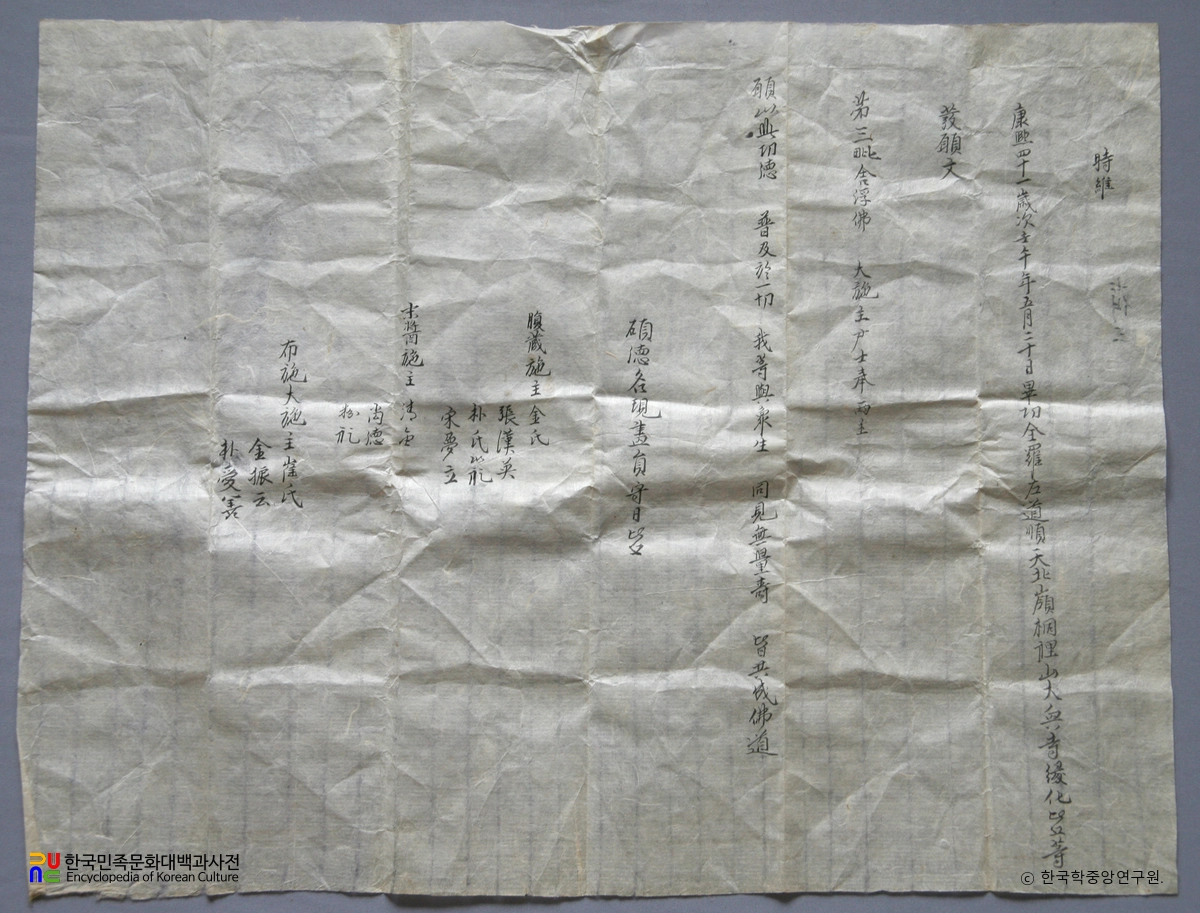 時維
康熙四十一歲次壬午年五月二十日畢功全羅左道順天北嶺桐裡山大興寺緣化比丘等
發願文
第三毗舍浮佛 大施主尹士奉兩主
願以此功德 普及於一切 我等與衆生 同見無量壽 皆共成佛道
碩德各現畫員守日比丘
腹藏施主金氏
張漢英
朴氏
宋夢立
末醬施主
尚德
布施大施主崔氏
金振云
朴愛善
한국민족문화대백과사전
Encyclopedia of Korean Culture
ⓒ 한국학중앙연구원.